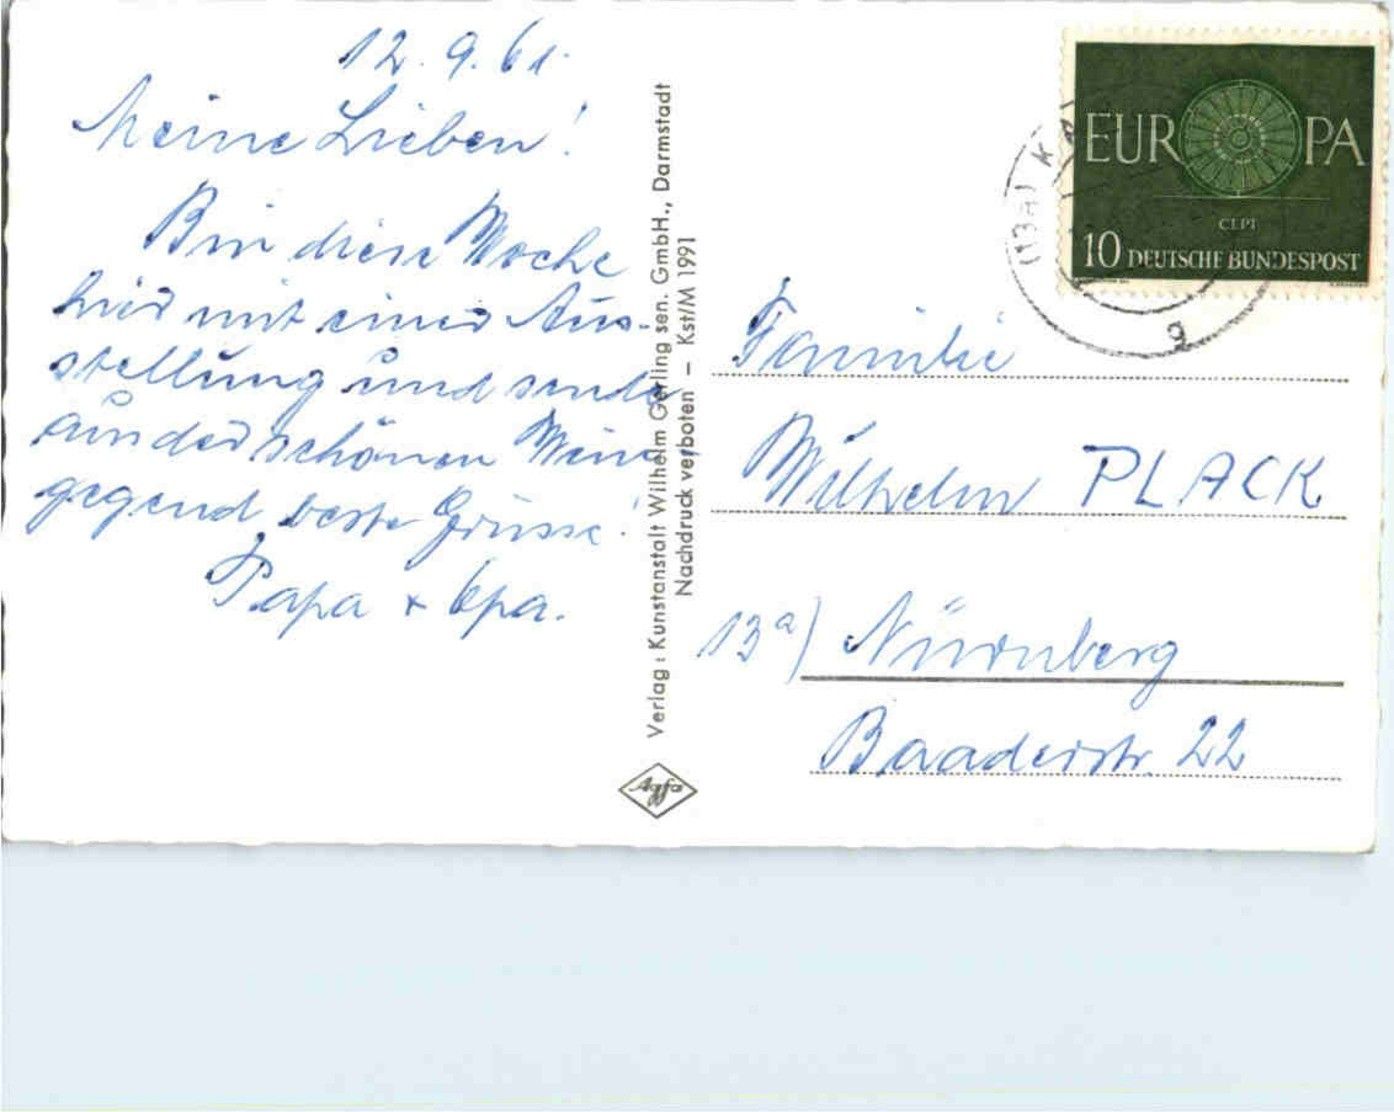 12.9.61.
Meine Lieben!
Bin diese Woche
hier mit einer Aus-
stellung und sende
aus der schönen Wein
gegend beste Grüsse!
Papa + Opa.
Verlag: Kunstanstalt Wilhelm Gerling sen. GmbH., Darmstadt
Nachdruck verboten – Kst/M 1991
Agfa
EUROPA
CEPT
10 DEUTSCHE BUNDESPOST
(13a) K
g
Familie
Wilhelm PLACK
13a) Nürnberg
Baaderstr. 22